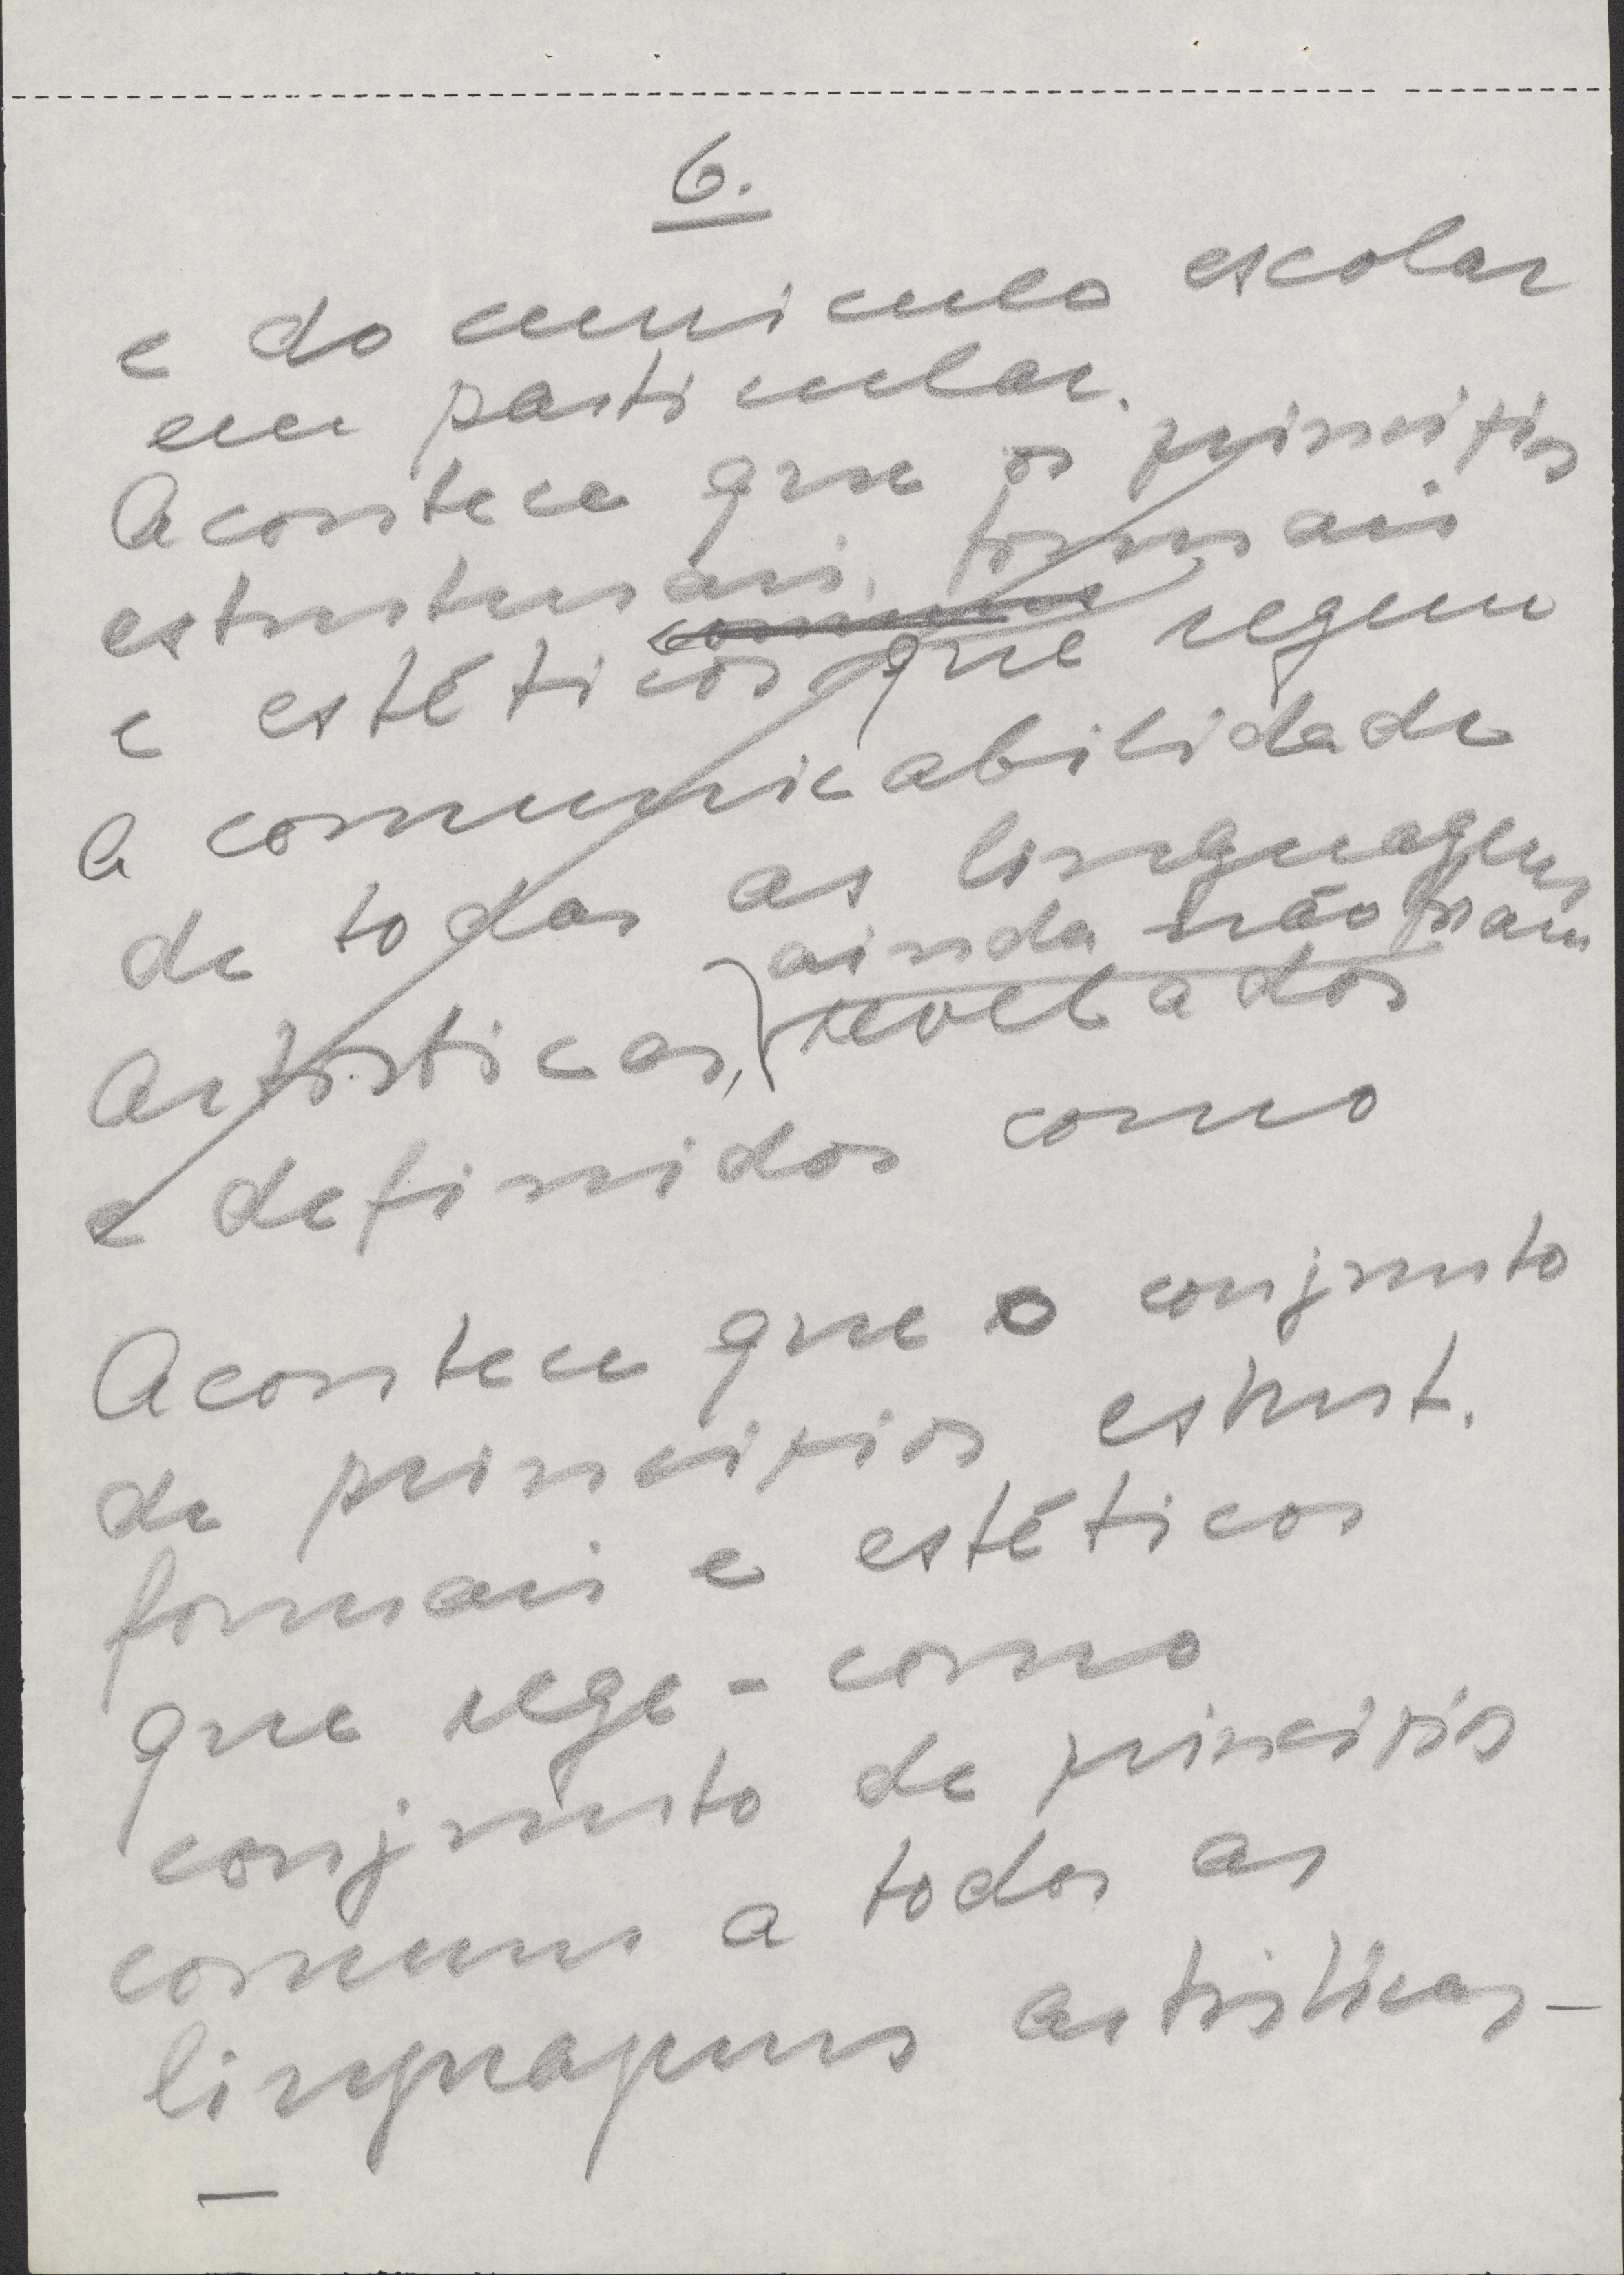 6.
e do curriculo escolar
em particular.
Acontece que os princípios
estruturais, formais
comuns
e estéticos que regem
a comunicabilidade
de todas as linguagens
ainda não
artísticas, revelados
e definidos como
Acontece que o conjunto
de princípios estrut.
formais e estéticos
que rege - como
conjunto de princípios
comum a todas as
linguagens artísticas -